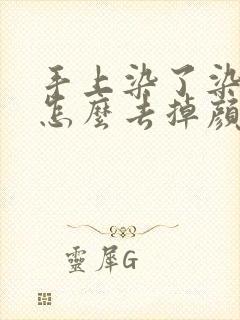 手上染了染
怎麼去掉顏
靈犀G